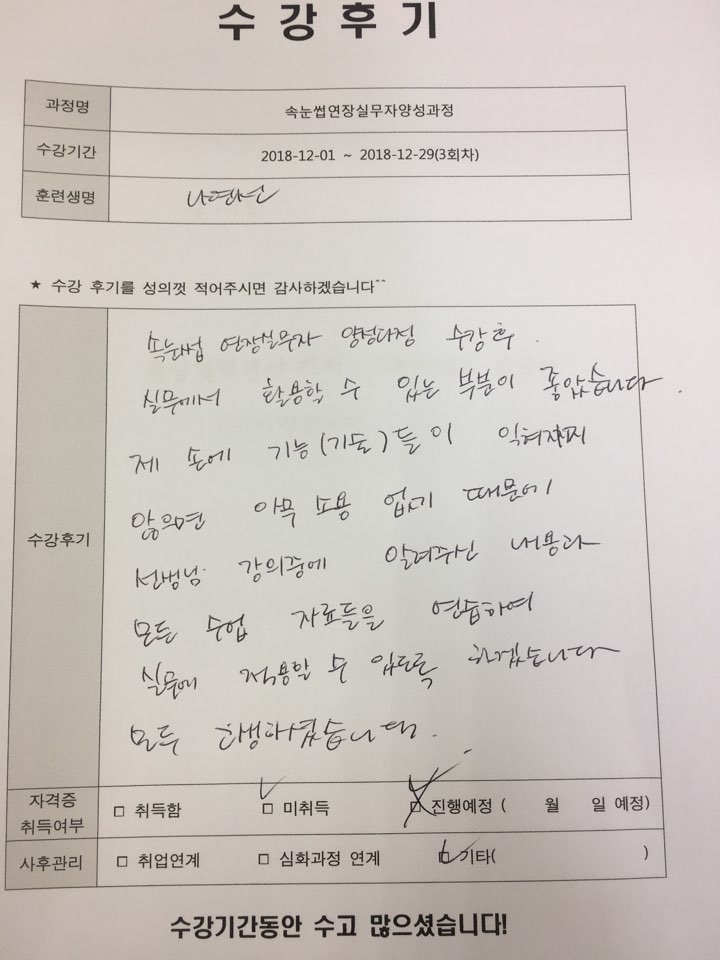 수강후기
과정명 속눈썹연장실무자양성과정
수강기간 2018-12-01 ~ 2018-12-29(3회차)
훈련생명
★ 수강 후기를 성의껏 적어주시면 감사하겠습니다^^
수강후기
연장실무자 양성과정 수강후.
실무에서 활용할 수 있는 부분이 좋았습니다.
제 손에 기능(기도)들이 익혀지지
않으면 아무 소용 없기 때문에
강의중에 알려주신 내용과
모든 수업 자료들을 연습하여
실무에 적용할 수 있도록 하겠습니다
모두
자격증 취득여부 □ 취득함 □ 미취득 □ 진행예정 ( 월 일 예정)
사후관리 □ 취업연계 □ 심화과정 연계 □ 기타( )
수강기간동안 수고 많으셨습니다!